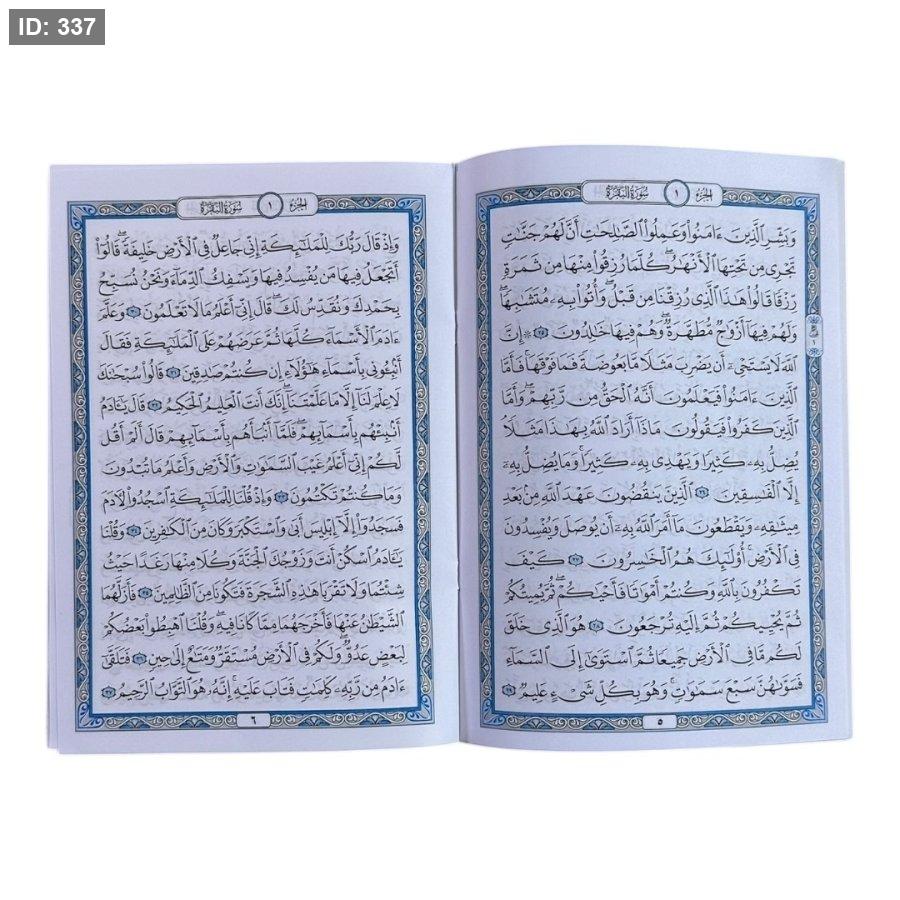 ID: 337
الجزء ١ سورة البقرة
وَبَشِّرِ ٱلَّذِينَ ءَامَنُوا۟ وَعَمِلُوا۟ ٱلصَّـٰلِحَـٰتِ أَنَّ لَهُمْ جَنَّـٰتٍ
تَجْرِى مِن تَحْتِهَا ٱلْأَنْهَـٰرُ ۖ كُلَّمَا رُزِقُوا۟ مِنْهَا مِن ثَمَرَةٍ
رِّزْقًا قَالُوا۟ هَـٰذَا ٱلَّذِى رُزِقْنَا مِن قَبْلُ ۖ وَأُتُوا۟ بِهِۦ مُتَشَـٰبِهًا ۖ
وَلَهُمْ فِيهَآ أَزْوَٰجٌ مُّطَهَّرَةٌ ۖ وَهُمْ فِيهَا خَـٰلِدُونَ ٢٥ ۞ إِنَّ
ٱللَّهَ لَا يَسْتَحْىِۦٓ أَن يَضْرِبَ مَثَلًا مَّا بَعُوضَةً فَمَا فَوْقَهَا ۚ فَأَمَّا
ٱلَّذِينَ ءَامَنُوا۟ فَيَعْلَمُونَ أَنَّهُ ٱلْحَقُّ مِن رَّبِّهِمْ ۖ وَأَمَّا
ٱلَّذِينَ كَفَرُوا۟ فَيَقُولُونَ مَاذَآ أَرَادَ ٱللَّهُ بِهَـٰذَا مَثَلًا ۘ
يُضِلُّ بِهِۦ كَثِيرًا وَيَهْدِى بِهِۦ كَثِيرًا ۚ وَمَا يُضِلُّ بِهِۦٓ
إِلَّا ٱلْفَـٰسِقِينَ ٢٦ ٱلَّذِينَ يَنقُضُونَ عَهْدَ ٱللَّهِ مِنۢ بَعْدِ
مِيثَـٰقِهِۦ وَيَقْطَعُونَ مَآ أَمَرَ ٱللَّهُ بِهِۦٓ أَن يُوصَلَ وَيُفْسِدُونَ
فِى ٱلْأَرْضِ ۚ أُو۟لَـٰٓئِكَ هُمُ ٱلْخَـٰسِرُونَ ٢٧ كَيْفَ
تَكْفُرُونَ بِٱللَّهِ وَكُنتُمْ أَمْوَٰتًا فَأَحْيَـٰكُمْ ۖ ثُمَّ يُمِيتُكُمْ
ثُمَّ يُحْيِيكُمْ ثُمَّ إِلَيْهِ تُرْجَعُونَ ٢٨ هُوَ ٱلَّذِى خَلَقَ
لَكُم مَّا فِى ٱلْأَرْضِ جَمِيعًا ثُمَّ ٱسْتَوَىٰٓ إِلَى ٱلسَّمَآءِ
فَسَوَّىٰهُنَّ سَبْعَ سَمَـٰوَٰتٍ ۚ وَهُوَ بِكُلِّ شَىْءٍ عَلِيمٌ ٢٩
٥
الجزء ١ سورة البقرة
وَإِذْ قَالَ رَبُّكَ لِلْمَلَـٰٓئِكَةِ إِنِّى جَاعِلٌ فِى ٱلْأَرْضِ خَلِيفَةً ۖ قَالُوٓا۟
أَتَجْعَلُ فِيهَا مَن يُفْسِدُ فِيهَا وَيَسْفِكُ ٱلدِّمَآءَ وَنَحْنُ نُسَبِّحُ
بِحَمْدِكَ وَنُقَدِّسُ لَكَ ۖ قَالَ إِنِّىٓ أَعْلَمُ مَا لَا تَعْلَمُونَ ٣٠ وَعَلَّمَ
ءَادَمَ ٱلْأَسْمَآءَ كُلَّهَا ثُمَّ عَرَضَهُمْ عَلَى ٱلْمَلَـٰٓئِكَةِ فَقَالَ
أَنۢبِـُٔونِى بِأَسْمَآءِ هَـٰٓؤُلَآءِ إِن كُنتُمْ صَـٰدِقِينَ ٣١ قَالُوا۟ سُبْحَـٰنَكَ
لَا عِلْمَ لَنَآ إِلَّا مَا عَلَّمْتَنَآ ۖ إِنَّكَ أَنتَ ٱلْعَلِيمُ ٱلْحَكِيمُ ٣٢ قَالَ يَـٰٓـَٔادَمُ
أَنۢبِئْهُم بِأَسْمَآئِهِمْ ۖ فَلَمَّآ أَنۢبَأَهُم بِأَسْمَآئِهِمْ قَالَ أَلَمْ أَقُل
لَّكُمْ إِنِّىٓ أَعْلَمُ غَيْبَ ٱلسَّمَـٰوَٰتِ وَٱلْأَرْضِ وَأَعْلَمُ مَا تُبْدُونَ
وَمَا كُنتُمْ تَكْتُمُونَ ٣٣ وَإِذْ قُلْنَا لِلْمَلَـٰٓئِكَةِ ٱسْجُدُوا۟ لِـَٔادَمَ
فَسَجَدُوٓا۟ إِلَّآ إِبْلِيسَ أَبَىٰ وَٱسْتَكْبَرَ وَكَانَ مِنَ ٱلْكَـٰفِرِينَ ٣٤ وَقُلْنَا
يَـٰٓـَٔادَمُ ٱسْكُنْ أَنتَ وَزَوْجُكَ ٱلْجَنَّةَ وَكُلَا مِنْهَا رَغَدًا حَيْثُ
شِئْتُمَا وَلَا تَقْرَبَا هَـٰذِهِ ٱلشَّجَرَةَ فَتَكُونَا مِنَ ٱلظَّـٰلِمِينَ ٣٥ فَأَزَلَّهُمَا
ٱلشَّيْطَـٰنُ عَنْهَا فَأَخْرَجَهُمَا مِمَّا كَانَا فِيهِ ۖ وَقُلْنَا ٱهْبِطُوا۟ بَعْضُكُمْ
لِبَعْضٍ عَدُوٌّ ۖ وَلَكُمْ فِى ٱلْأَرْضِ مُسْتَقَرٌّ وَمَتَـٰعٌ إِلَىٰ حِينٍ ٣٦ فَتَلَقَّىٰٓ
ءَادَمُ مِن رَّبِّهِۦ كَلِمَـٰتٍ فَتَابَ عَلَيْهِ ۚ إِنَّهُۥ هُوَ ٱلتَّوَّابُ ٱلرَّحِيمُ ٣٧
٦